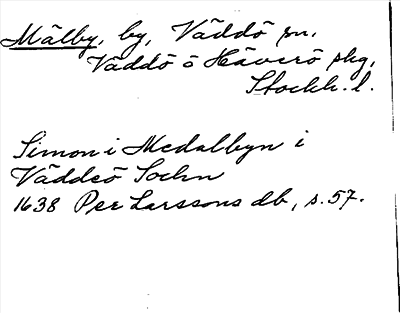 Mälby, by, Väddö sn,
Väddö o Häverö skg,
Stockh. l.
Simon i Medalbyn i
Väddeö Sochn
1638 Per Larssons db, s. 57.